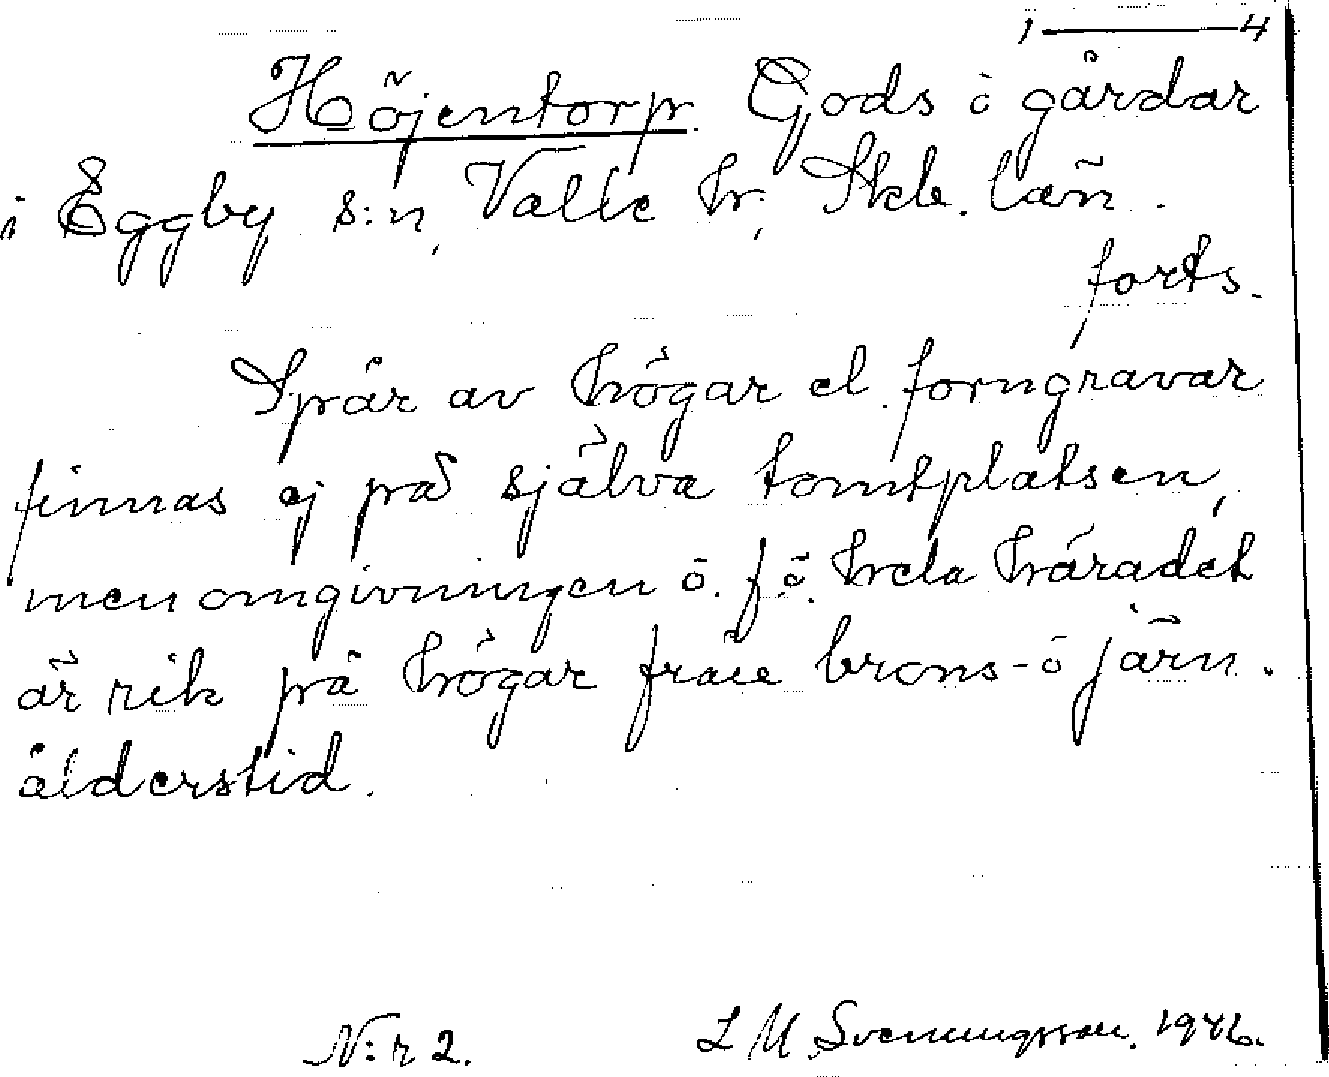 1 — 4
Höjentorp. Gods o gårdar
i Eggby s:n, Valle hr, Skb. län.
forts.
Spår av högar el. forngravar
finnas ej på själva tomtplatsen,
men omgivningen o. f. ö. hela häradet
är rik på högar från brons- o järn.
ålderstid.
N:r 2. L M Svenungsson. 1946.